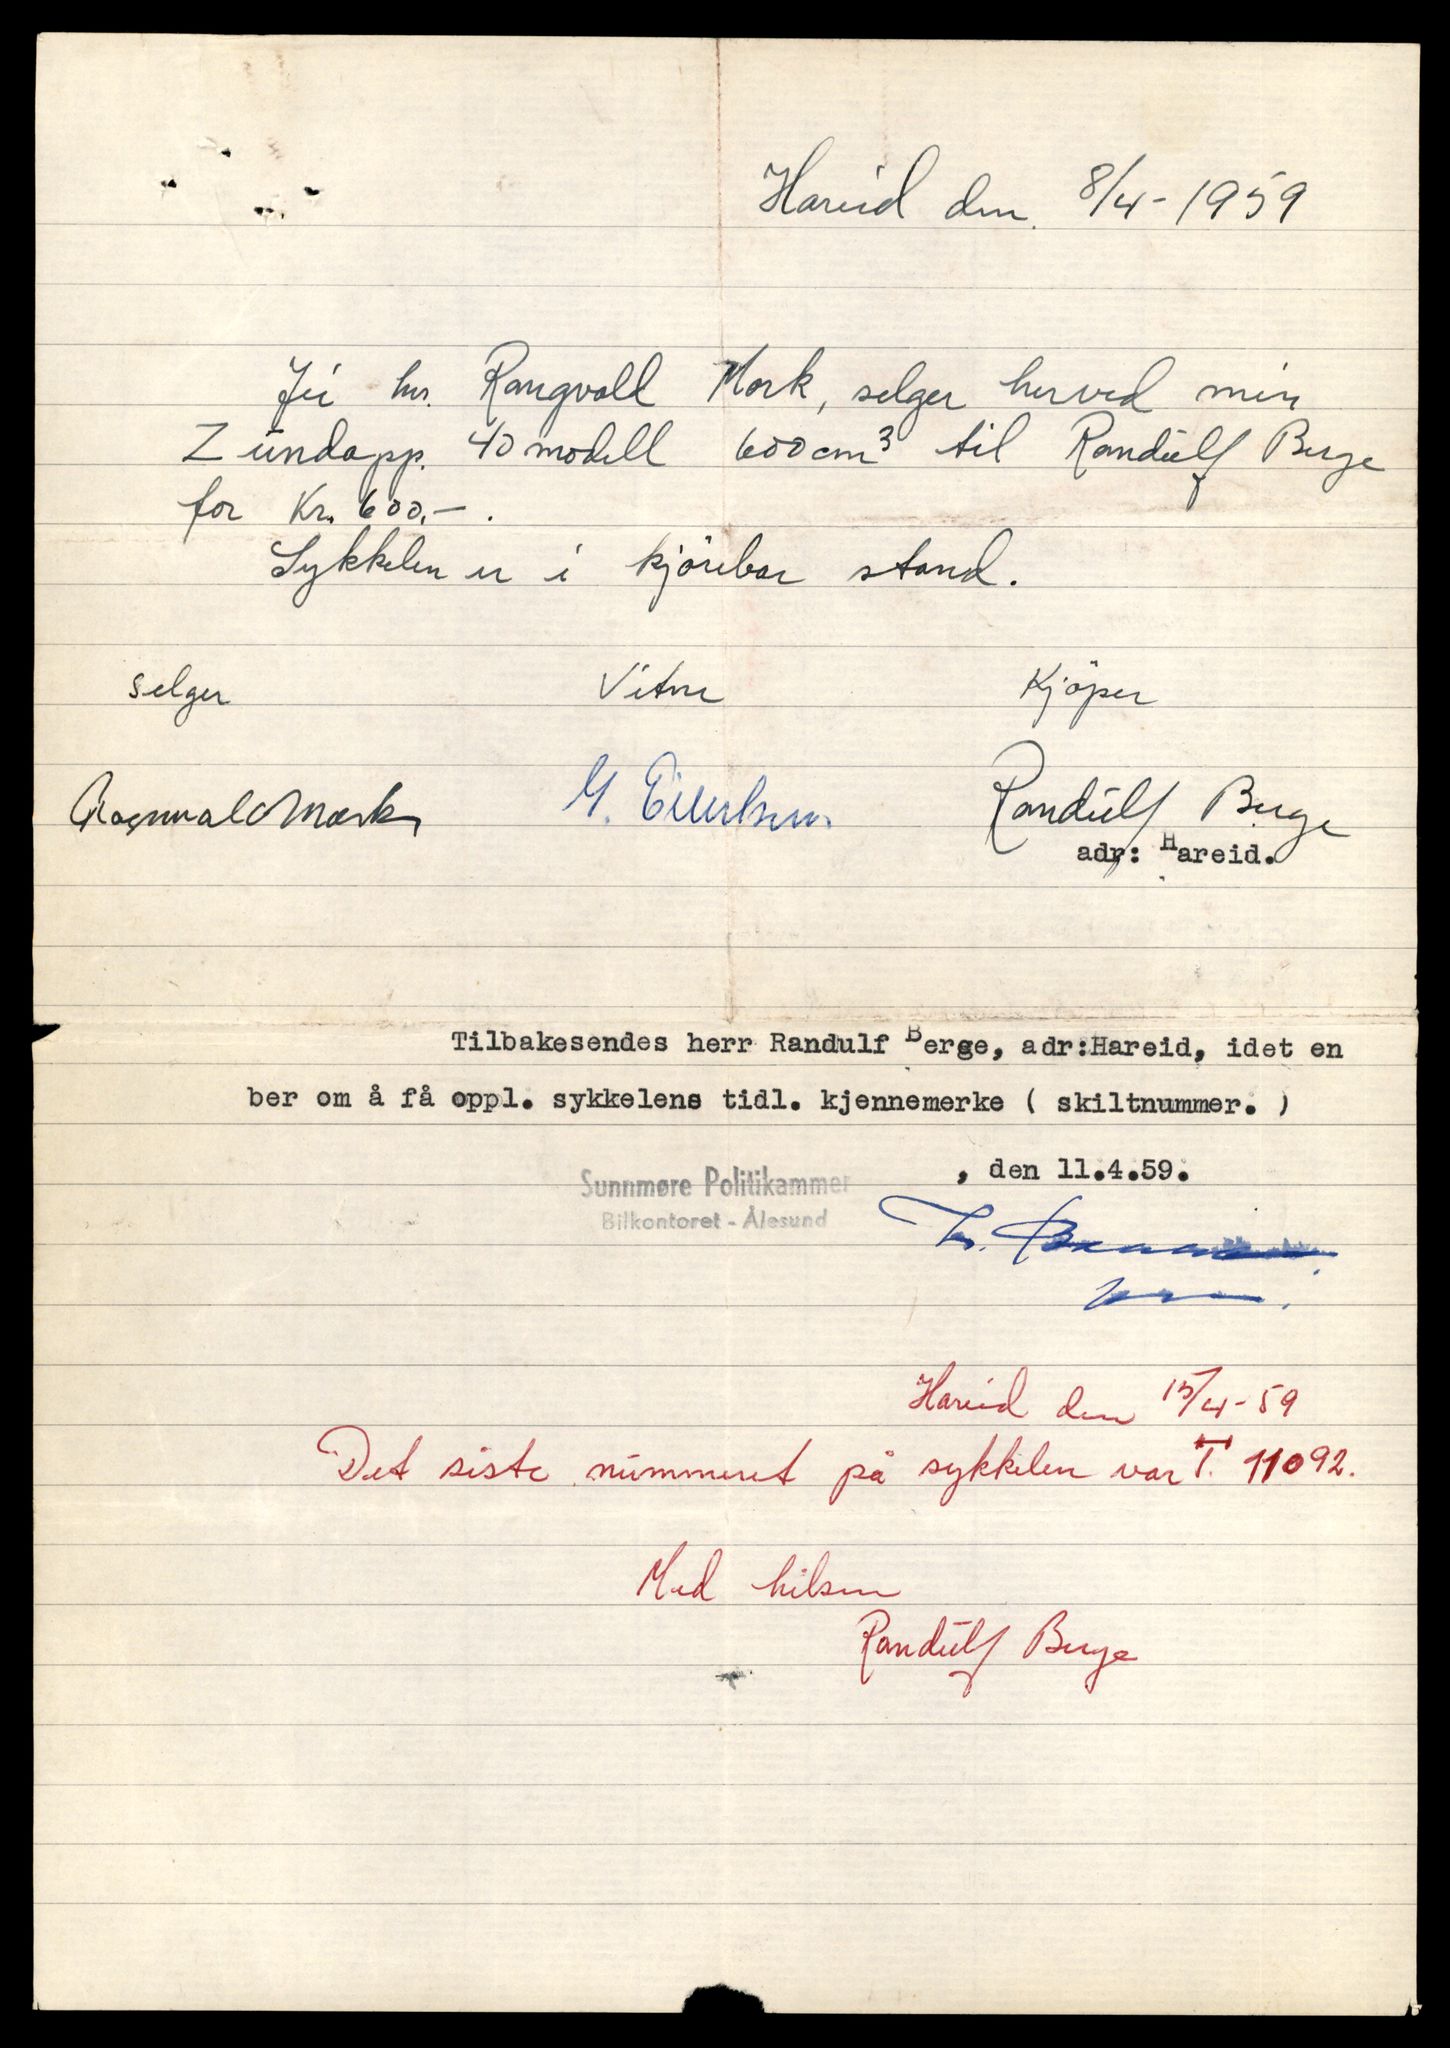 Hareid den 8/4-1959
Jei hr. Rangvald Mork, selger herved min
Zündapp. 40 modell 600 cm³ til Randulf Berge
for Kr. 600,-.
Sykkelen er i kjörebar stand.
selger Vitne Kjöper
Ragnvald Mork G. Eilertsen Randulf Berge
adr: Hareid.
Tilbakesendes herr Randulf Berge, adr:Hareid, idet en
ber om å få oppl. sykkelens tidl. kjennemerke ( skiltnummer. )
, den 11.4.59.
Sunnmøre Politikammer
Bilkontoret - Ålesund
Hareid den 15/4-59
Det siste nummeret på sykkelen var T. 11092.
Med hilsen
Randulf Berge